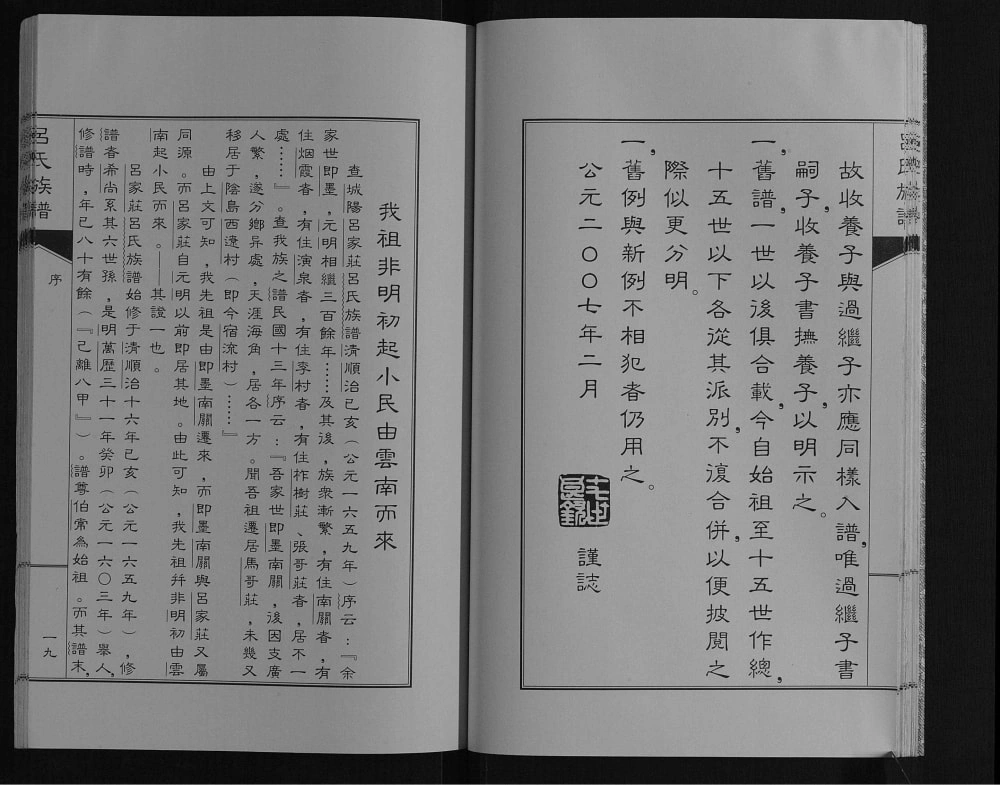 呂氏族譜
故收養子與過繼子亦應同樣入譜，唯過繼子書
嗣子，收養子書撫養子，以明示之。
一，舊譜一世以後俱合載，今自始祖至十五世作總，
十五世以下各從其派別，不復合併，以便披閱之
際似更分明。
一，舊例與新例不相犯者仍用之。
公元二〇〇七年二月
謹誌
我祖非明初起小民由雲南而來
查城陽呂家莊呂氏族譜清順治己亥（公元一六五九年）序云：『余
家世即墨，元明相繼三百餘年……及其後，族衆漸繁，有住南關者，有
住烟霞者，有住演泉者，有住李村者，有住柞樹莊、張哥莊者，居不一
處……』。查我族之譜民國十三年序云：『吾家世即墨南關，後因支廣
人繁，遂分鄉异處，天涯海角，居各一方。聞吾祖遷居馬哥莊，未幾又
移居于陰島西遠村（即今宿流村）……』
由上文可知，我先祖是由即墨南關遷來，而即墨南關與呂家莊又屬
同源。而呂家莊自元明以前即居其地。由此可知，我先祖并非明初由雲
南起小民而來。——其證一也。
呂家莊呂氏族譜始修于清順治十六年己亥（公元一六五九年），修
譜者希尚系其六世孫，是明萬歷三十一年癸卯（公元一六〇三年）舉人，
修譜時，年已八十有餘（『己離八甲』）。譜尊伯甯爲始祖。而其譜末，
呂氏族譜
序
一九